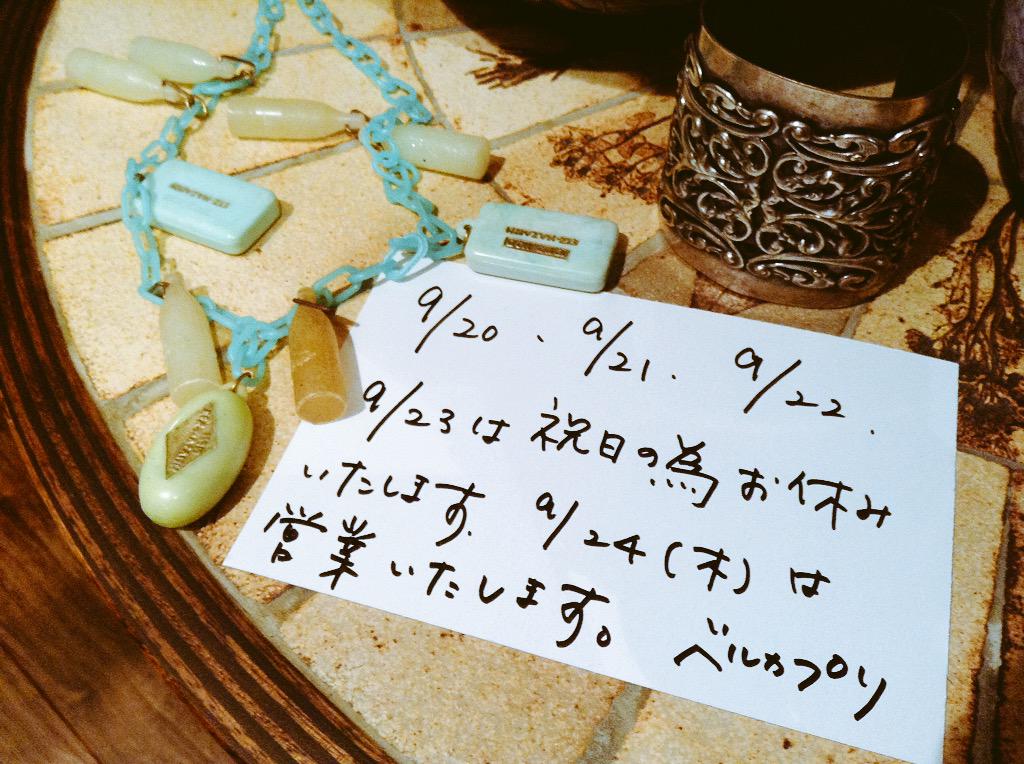 9/20、9/21.9/22.
9/23は祝日の為お休み
いたします.9/24(木)は
営業いたします。ベルカプリ